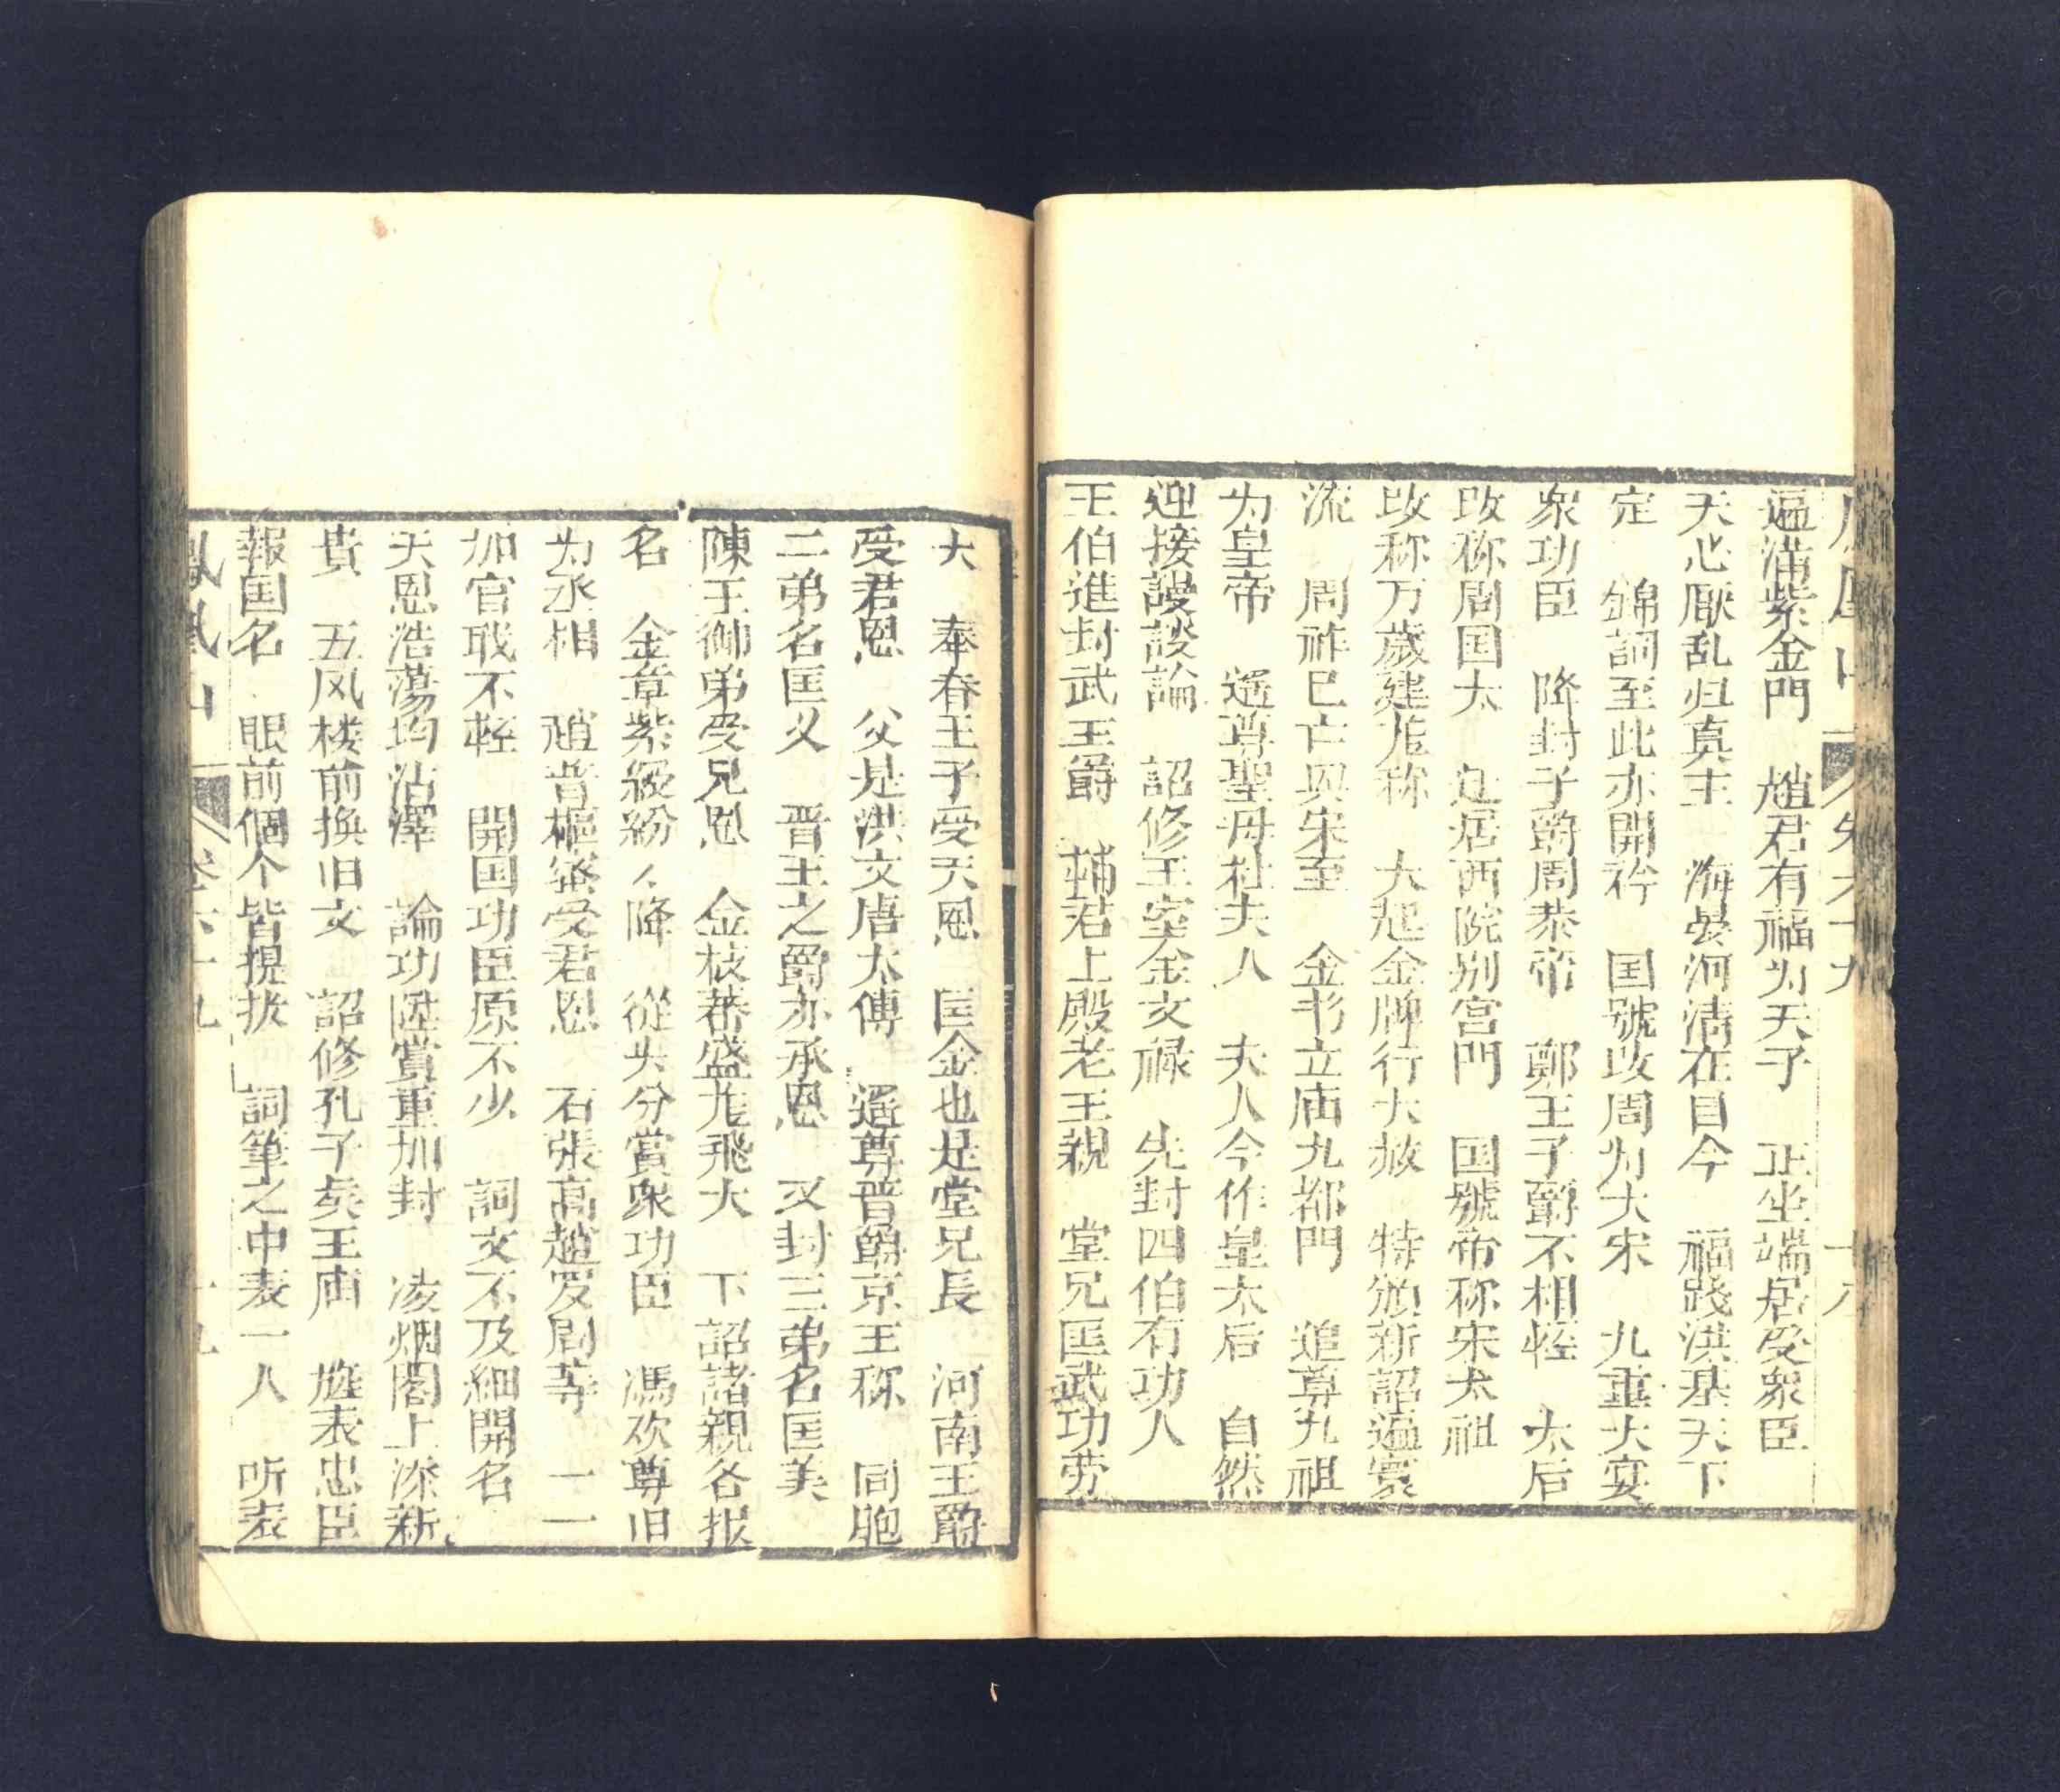 鳳凰山 卷六十九 十八
逼满紫金門 趙君有福为天子 正坐端居受衆臣
天心厭乱归真主 海晏河清在目今 福踐洪基天下
定 錦詞至此亦開衿 国號改周为大宋 九重大宴
衆功臣 降封子爵周恭帝 鄭王子爵不相輕 太后
改称周国太 迁居西院别宫門 国號帝称宋太祖
改称万歲建龙称 大赵金牌行大赦 特頒新詔遍寰
流 周祚已亡興宋至 金书立庙九都門 追尊九祖
为皇帝 遥尊聖母杜夫人 夫人今作皇太后 自然
迎接謾談論 詔修王室金文禄 先封四伯有功人
王伯進封武王爵 輔君上殿老王親 堂兄匡武功劳
大 奉春王子受天恩 匡金也是堂兄長 河南王爵
受君恩 父是洪文唐太傳 遥尊晋爵京王称 同胞
二弟名匡义 晋王之爵亦承恩 又封三弟名匡美
陳王御弟受兄恩 金枝蕃盛龙飛大 下詔諸親各报
名 金章紫綬紛々降 從头分賞衆功臣 馮欢尊旧
为丞相 趙普樞密受君恩 石張高趙罗剧等 一一
加官职不輕 開国功臣原不少 詞文不及細開名
天恩浩蕩均沾澤 論功陞賞重加封 凌烟閣上添新
貴 五凤楼前换旧文 詔修孔子矣王庙 旌表忠臣
報国名 眼前個个皆提拔 詞筆之中表一人 听表
鳳凰山 卷六十九 十九